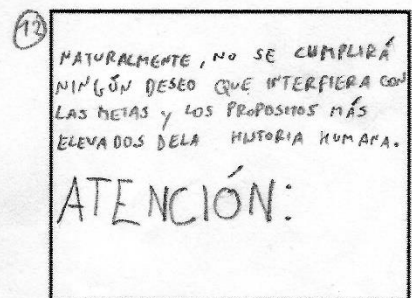 12
NATURALMENTE, NO SE CUMPLIRÁ
NINGÚN DESEO QUE INTERFIERA CON
LAS METAS Y LOS PROPOSITOS MÁS
ELEVADOS DE LA HISTORIA HUMANA.
ATENCIÓN: